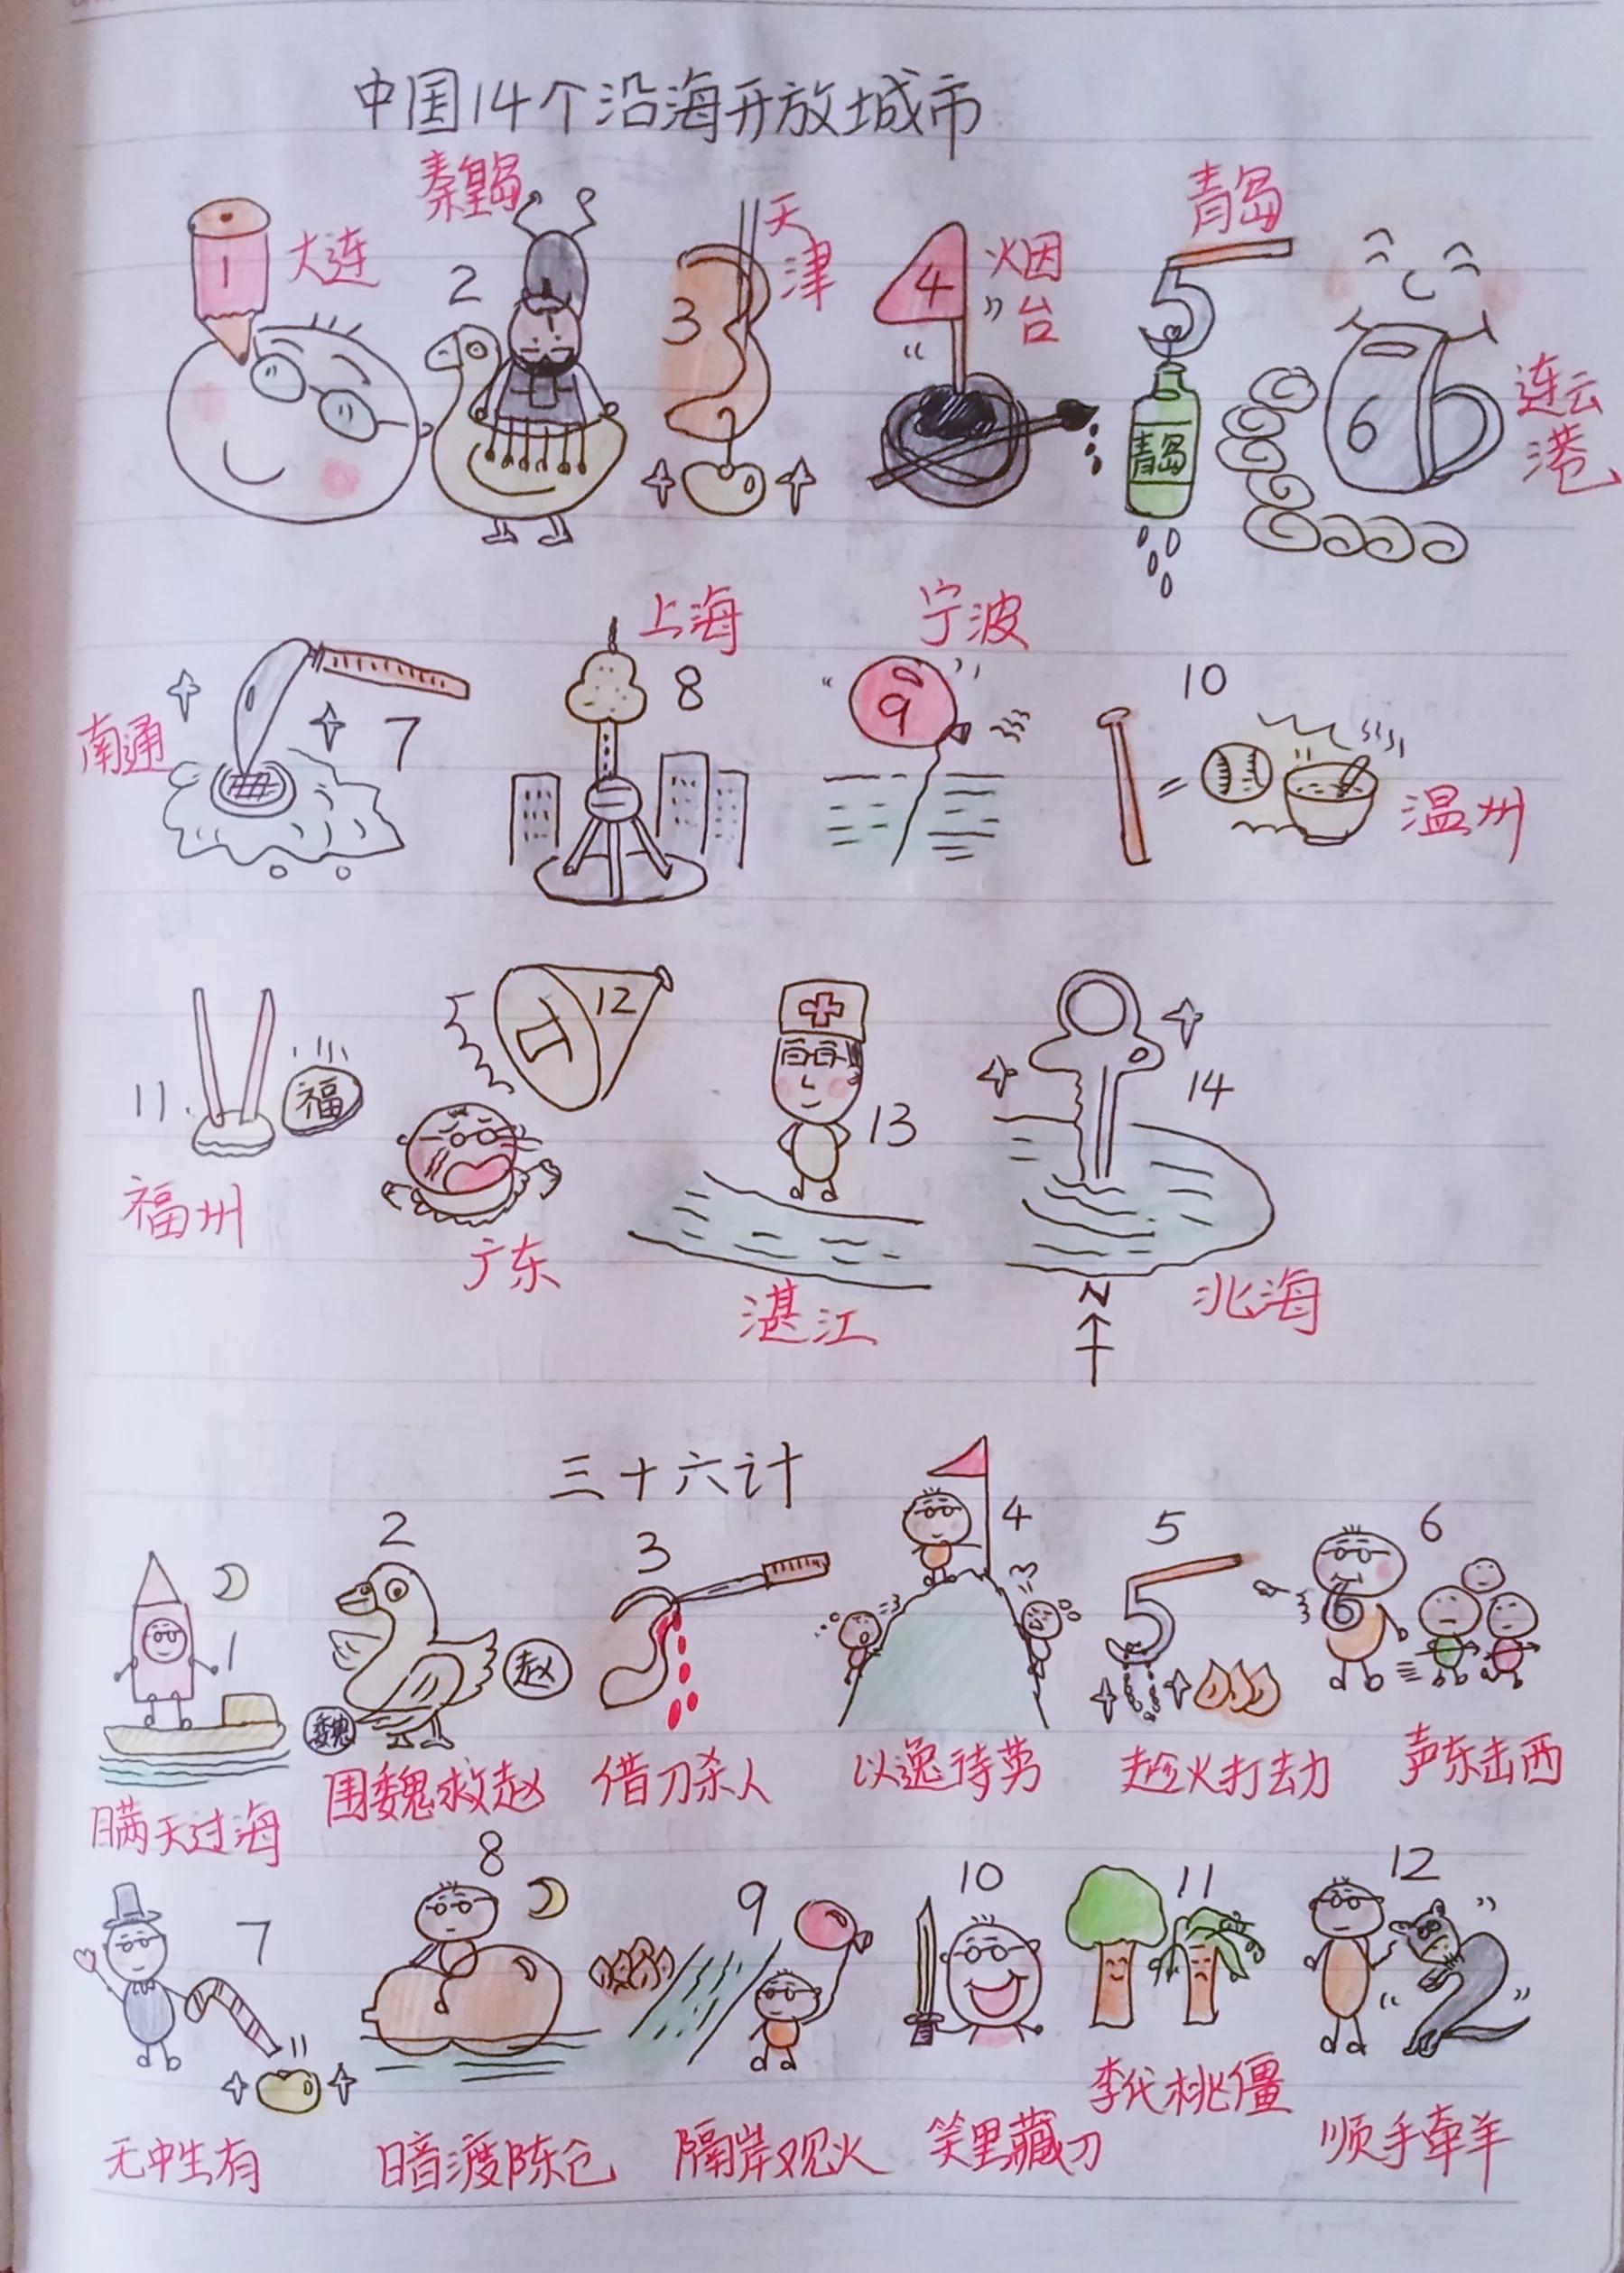 中国14个沿海开放城市
1 大连
2 秦皇岛
3 天津
4 烟台
5 青岛
青岛
6 连云港
7 南通
8 上海
9 宁波
10 温州
11. 福 福州
12 广东
13 湛江
14 北海
N
三十六计
1 瞒天过海
2 魏 赵 围魏救赵
3 借刀杀人
4 以逸待劳
5 趁火打劫
6 6 声东击西
7 无中生有
8 暗渡陈仓
9 隔岸观火
10 笑里藏刀
11 李代桃僵
12 顺手牵羊